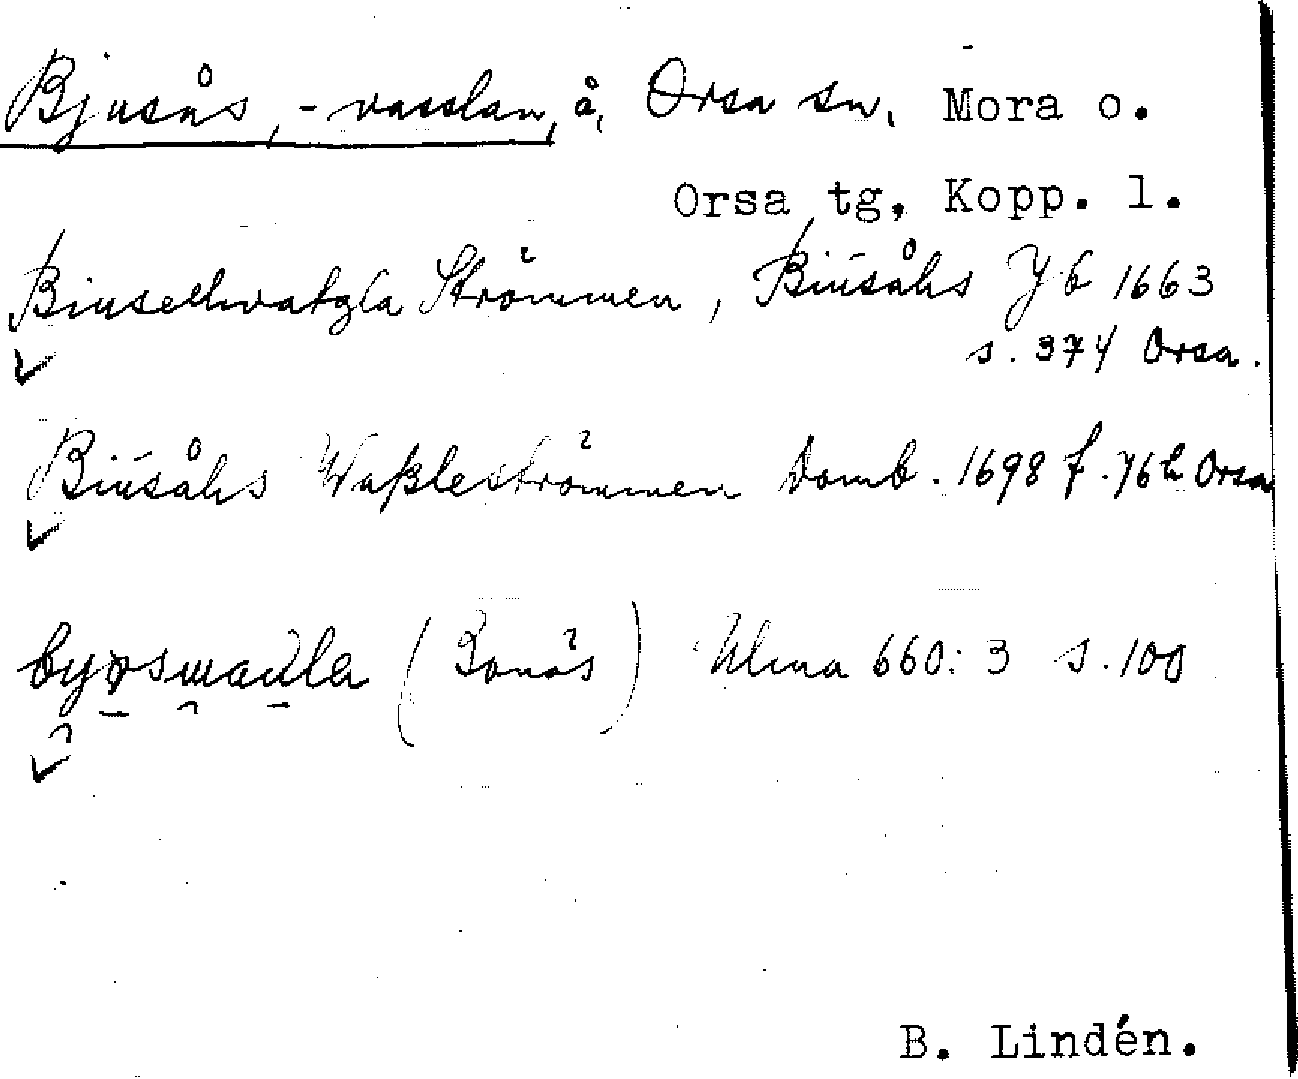 Bjusås, -vasslan, å, Orsa sn, Mora o.
Orsa tg, Kopp. l.
Biusehwatzla Strömmen, Biusåhs Jb 1663
s. 374 Orsa.
Biusåhs Waßleströmmen Domb. 1698 f. 76b Orsa
(Bonäs) Ulma 660:3 s. 100
B. Lindén.